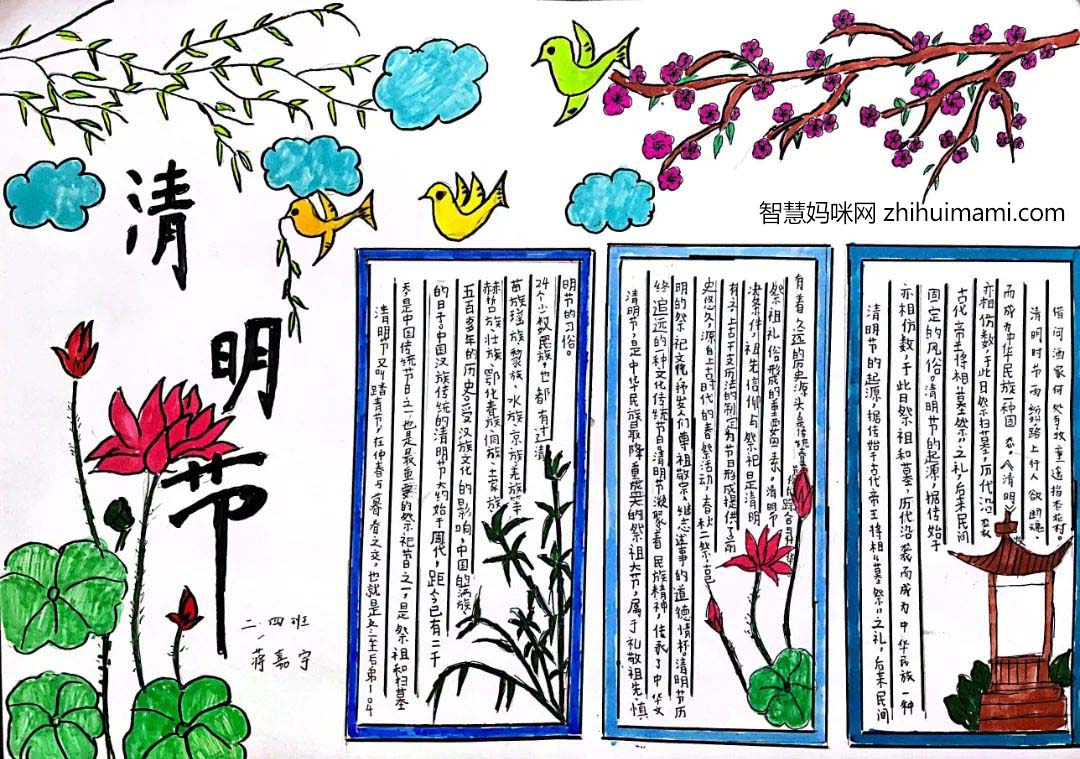 智慧妈咪网 zhihuimami.com
清明节
二、四班
蒋嘉宇
清明节又叫踏青节,在仲春与暮春之交,也就是冬至后第104
是中国传统节日之一,也是最重要的祭祀节日之一,是祭祖和扫墓
的日子。中国汉族传统的清明节大约始于周代,距今已有二千
五百多年的历史。受汉族文化的影响,中国的满族、
赫哲族、壮族、鄂伦春族、侗族、土家族
苗族、瑶族、黎族、水族、京族、羌族等
24个少数民族,也都有过清
明节的习俗。
清明节,是中华民族最隆重盛大的祭祖大节,属于礼敬祖先、慎
终追远的一种文化传统节日。清明节凝聚着民族精神,传承了中华文
明的祭祀文化,抒发人们尊祖敬宗、继志述事的道德情怀。清明节历
史悠久,源自上古时代的春祭活动,春秋二祭古已
有之,上古干支历法的制定为节日形成提供了前
决条件,祖先信仰与祭祀是清明
祭祖礼俗形成的重要因素。清明节
有着久远的历史源头,是传统春
清明节的起源,据传始于古代帝王将相“墓祭”之礼,后来民间
亦相仿效,于此日祭祖和墓,历代沿袭而成为中华民族一种
固定的风俗。清明节的起源,据传始于
古代帝王将相“墓祭”之礼,后来民间
亦相仿效,于此日祭扫墓,历代沿袭
而成为中华民族一种固态。《清明》
清明时节雨纷纷,路上行人欲断魂。
借问酒家何处有,牧童遥指杏花村。